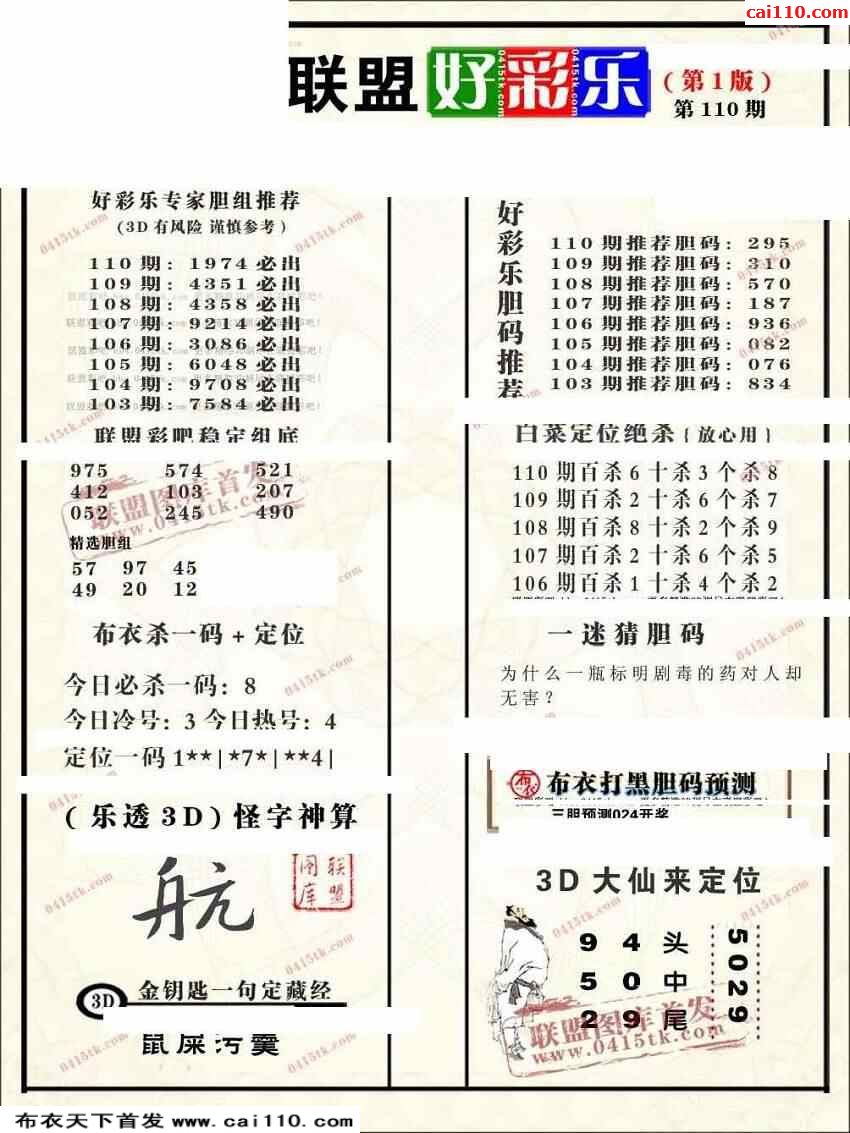 cai110.com
联盟 好彩乐 (第1版)
第110期
好彩乐专家胆组推荐
(3D有风险 谨慎参考)
110期: 1974必出
109期: 4351必出
108期: 4358必出
107期: 9214必出
106期: 3086必出
105期: 6048必出
104期: 9708必出
103期: 7584必出
联盟彩吧稳定组底
975 574 521
412 103 207
052 245 490
精选胆组
57 97 45
49 20 12
布衣杀一码 + 定位
今日必杀一码: 8
今日冷号: 3 今日热号: 4
定位一码 1**|*7*|**4|
(乐透3D)怪字神算
航
联盟图库
3D 金钥匙一句定藏经
鼠屎污羹
好彩乐胆码推荐
110期推荐胆码: 295
109期推荐胆码: 310
108期推荐胆码: 570
107期推荐胆码: 187
106期推荐胆码: 936
105期推荐胆码: 082
104期推荐胆码: 076
103期推荐胆码: 834
白菜定位绝杀{放心用}
110期百杀6十杀3个杀8
109期百杀2十杀6个杀7
108期百杀8十杀2个杀9
107期百杀2十杀6个杀5
106期百杀1十杀4个杀2
一迷猜胆码
为什么一瓶标明剧毒的药对人却
无害?
布衣 布衣打黑胆码预测
三胆预测024开奖
3D大仙来定位
9 4 头
5 0 中
2 9 尾
5029
联盟图库首发
www.0415tk.com
布衣天下首发 www.cai110.com